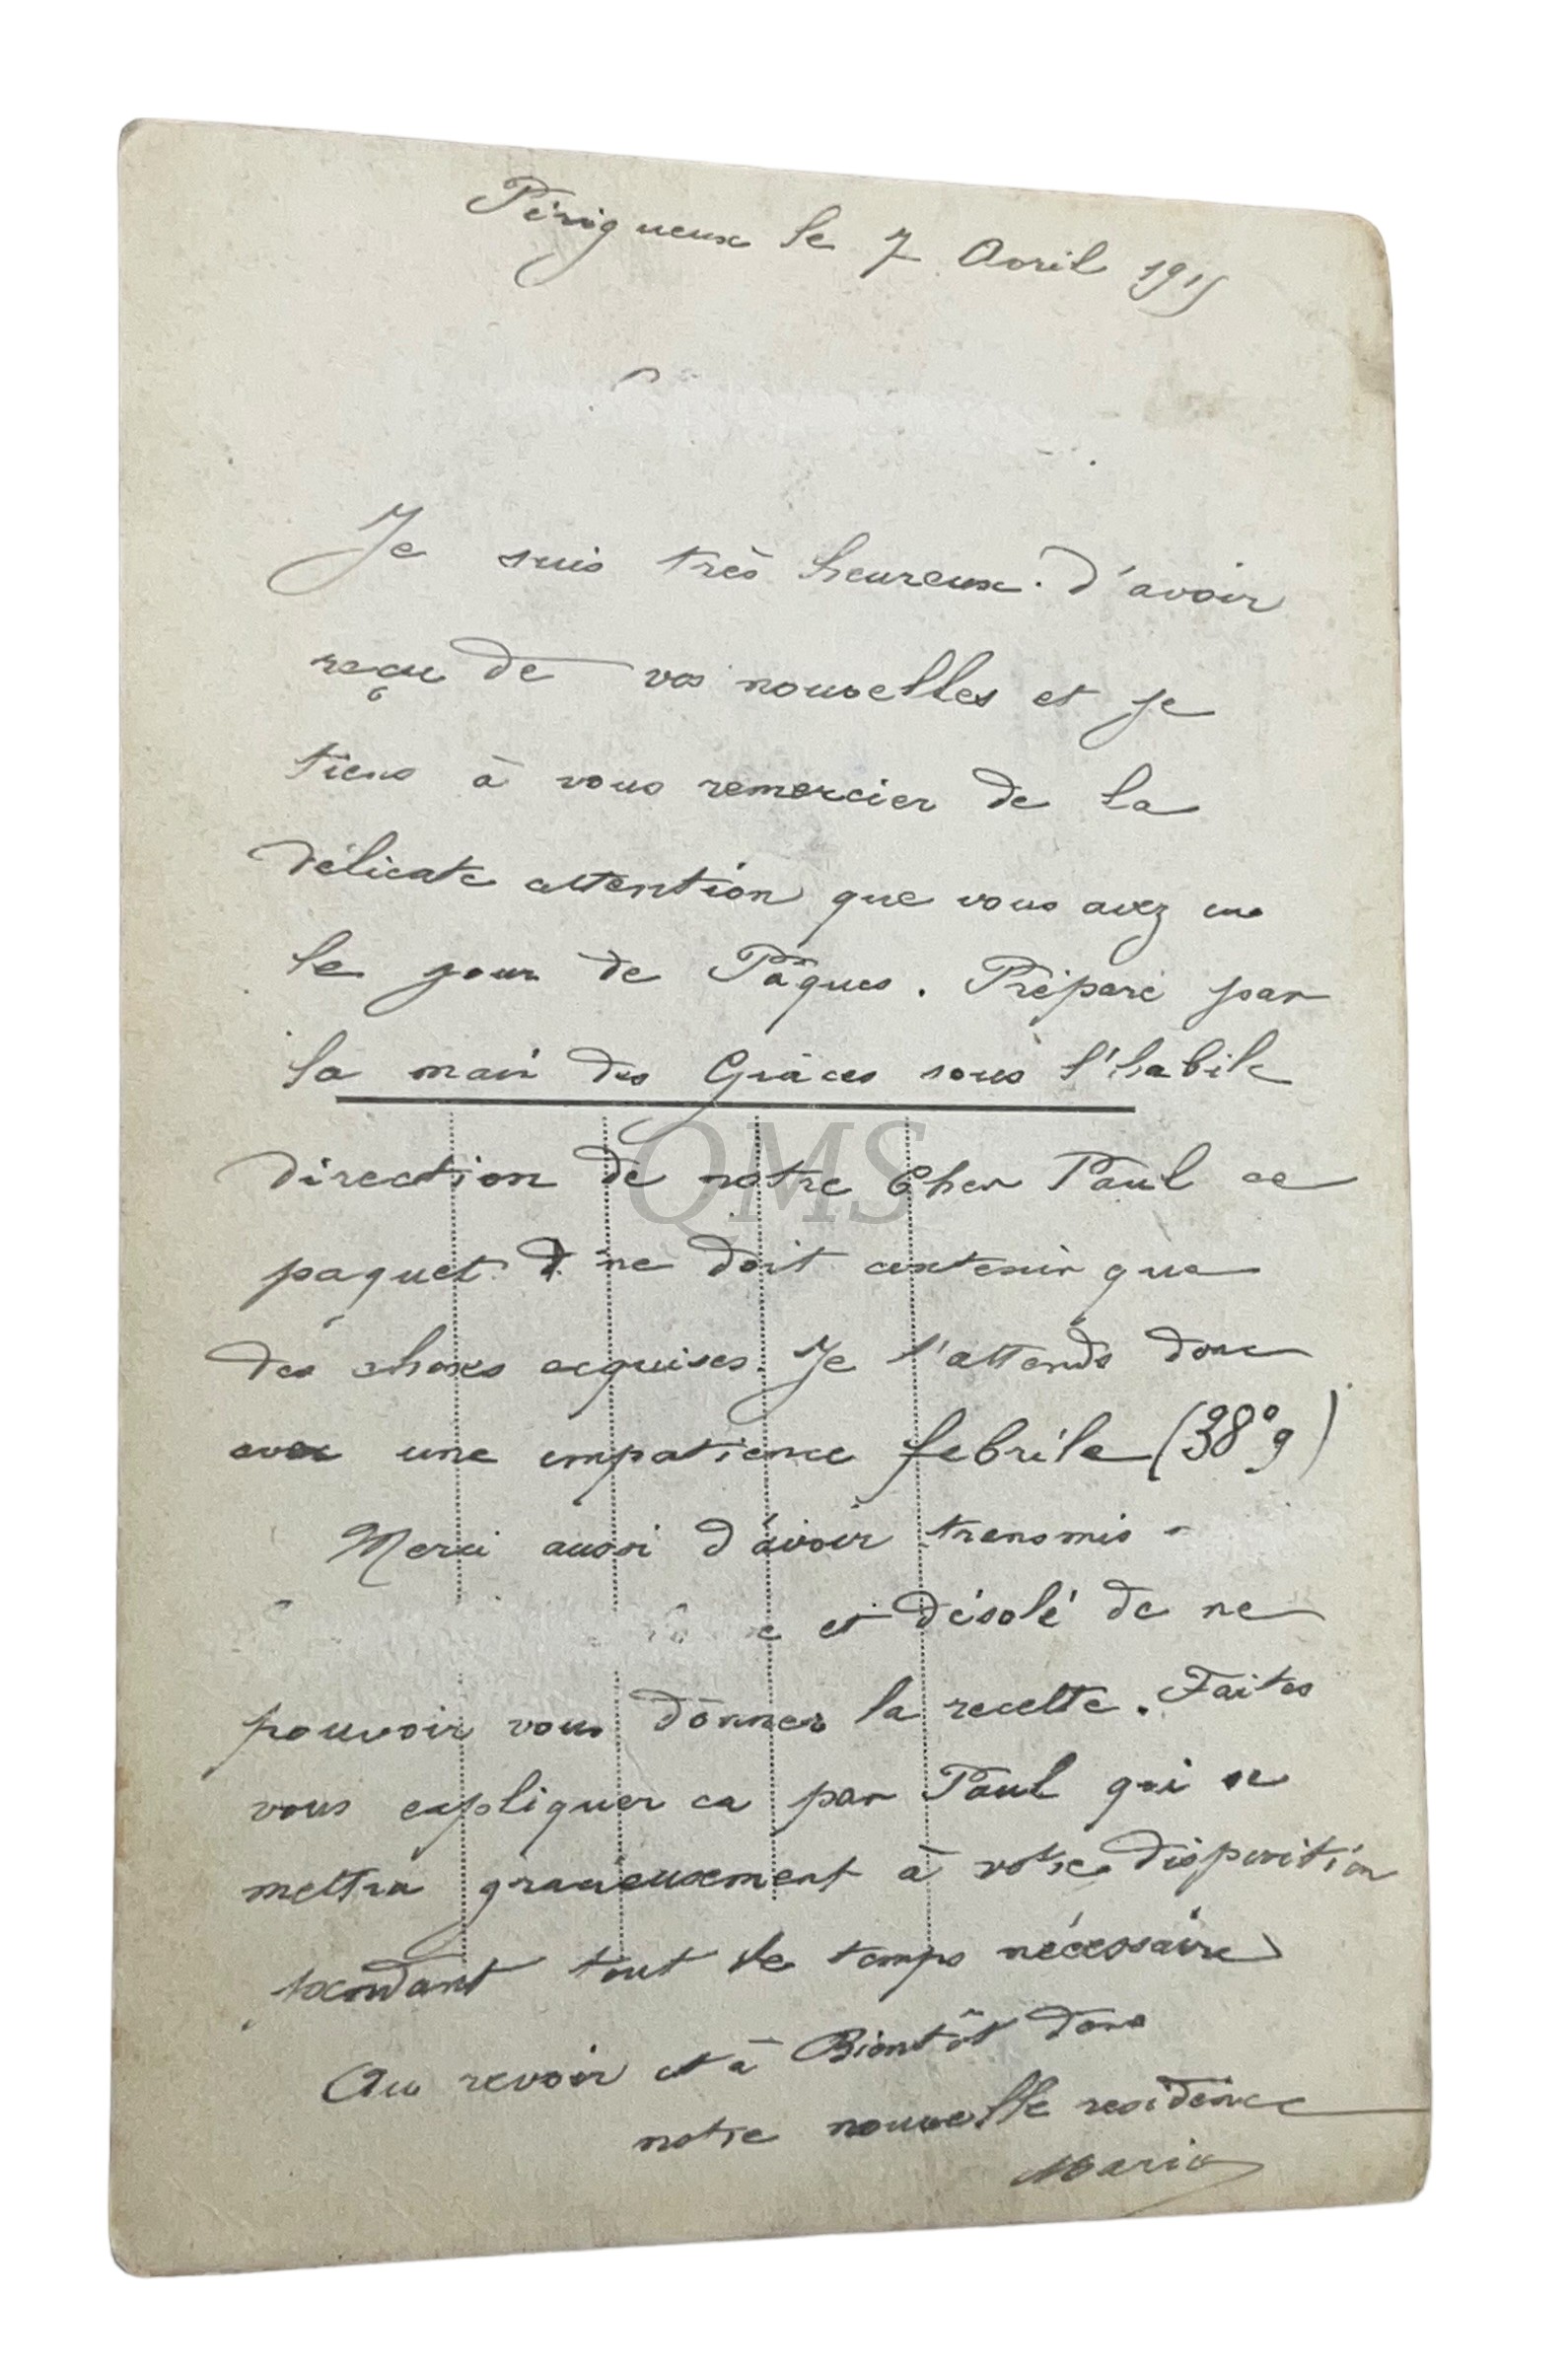 Périgueux le 7 Avril 1915
Je suis très heureux d'avoir
reçu de vos nouvelles et je
tiens à vous remercier de la
délicate attention que vous avez eue
le jour de Pâques. Préparé par
la main des Grâces sous l'habile
QMS
direction de notre Cher Paul ce
paquet ne doit contenir que
des choses exquises. Je l'attends donc
avec une impatience febrile (38°9)
Merci aussi d'avoir transmis
et désolé de ne
pouvoir vous donner la recette. Faites
vous expliquer ca par Paul qui se
mettra gracieusement à votre disposition
pendant tout le temps nécessaire
Au revoir et à Bientôt dans
notre nouvelle residence